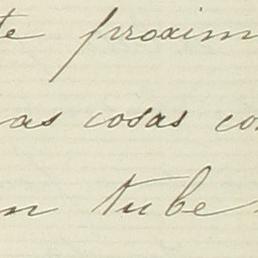 te proxim
as cosas co
n tube